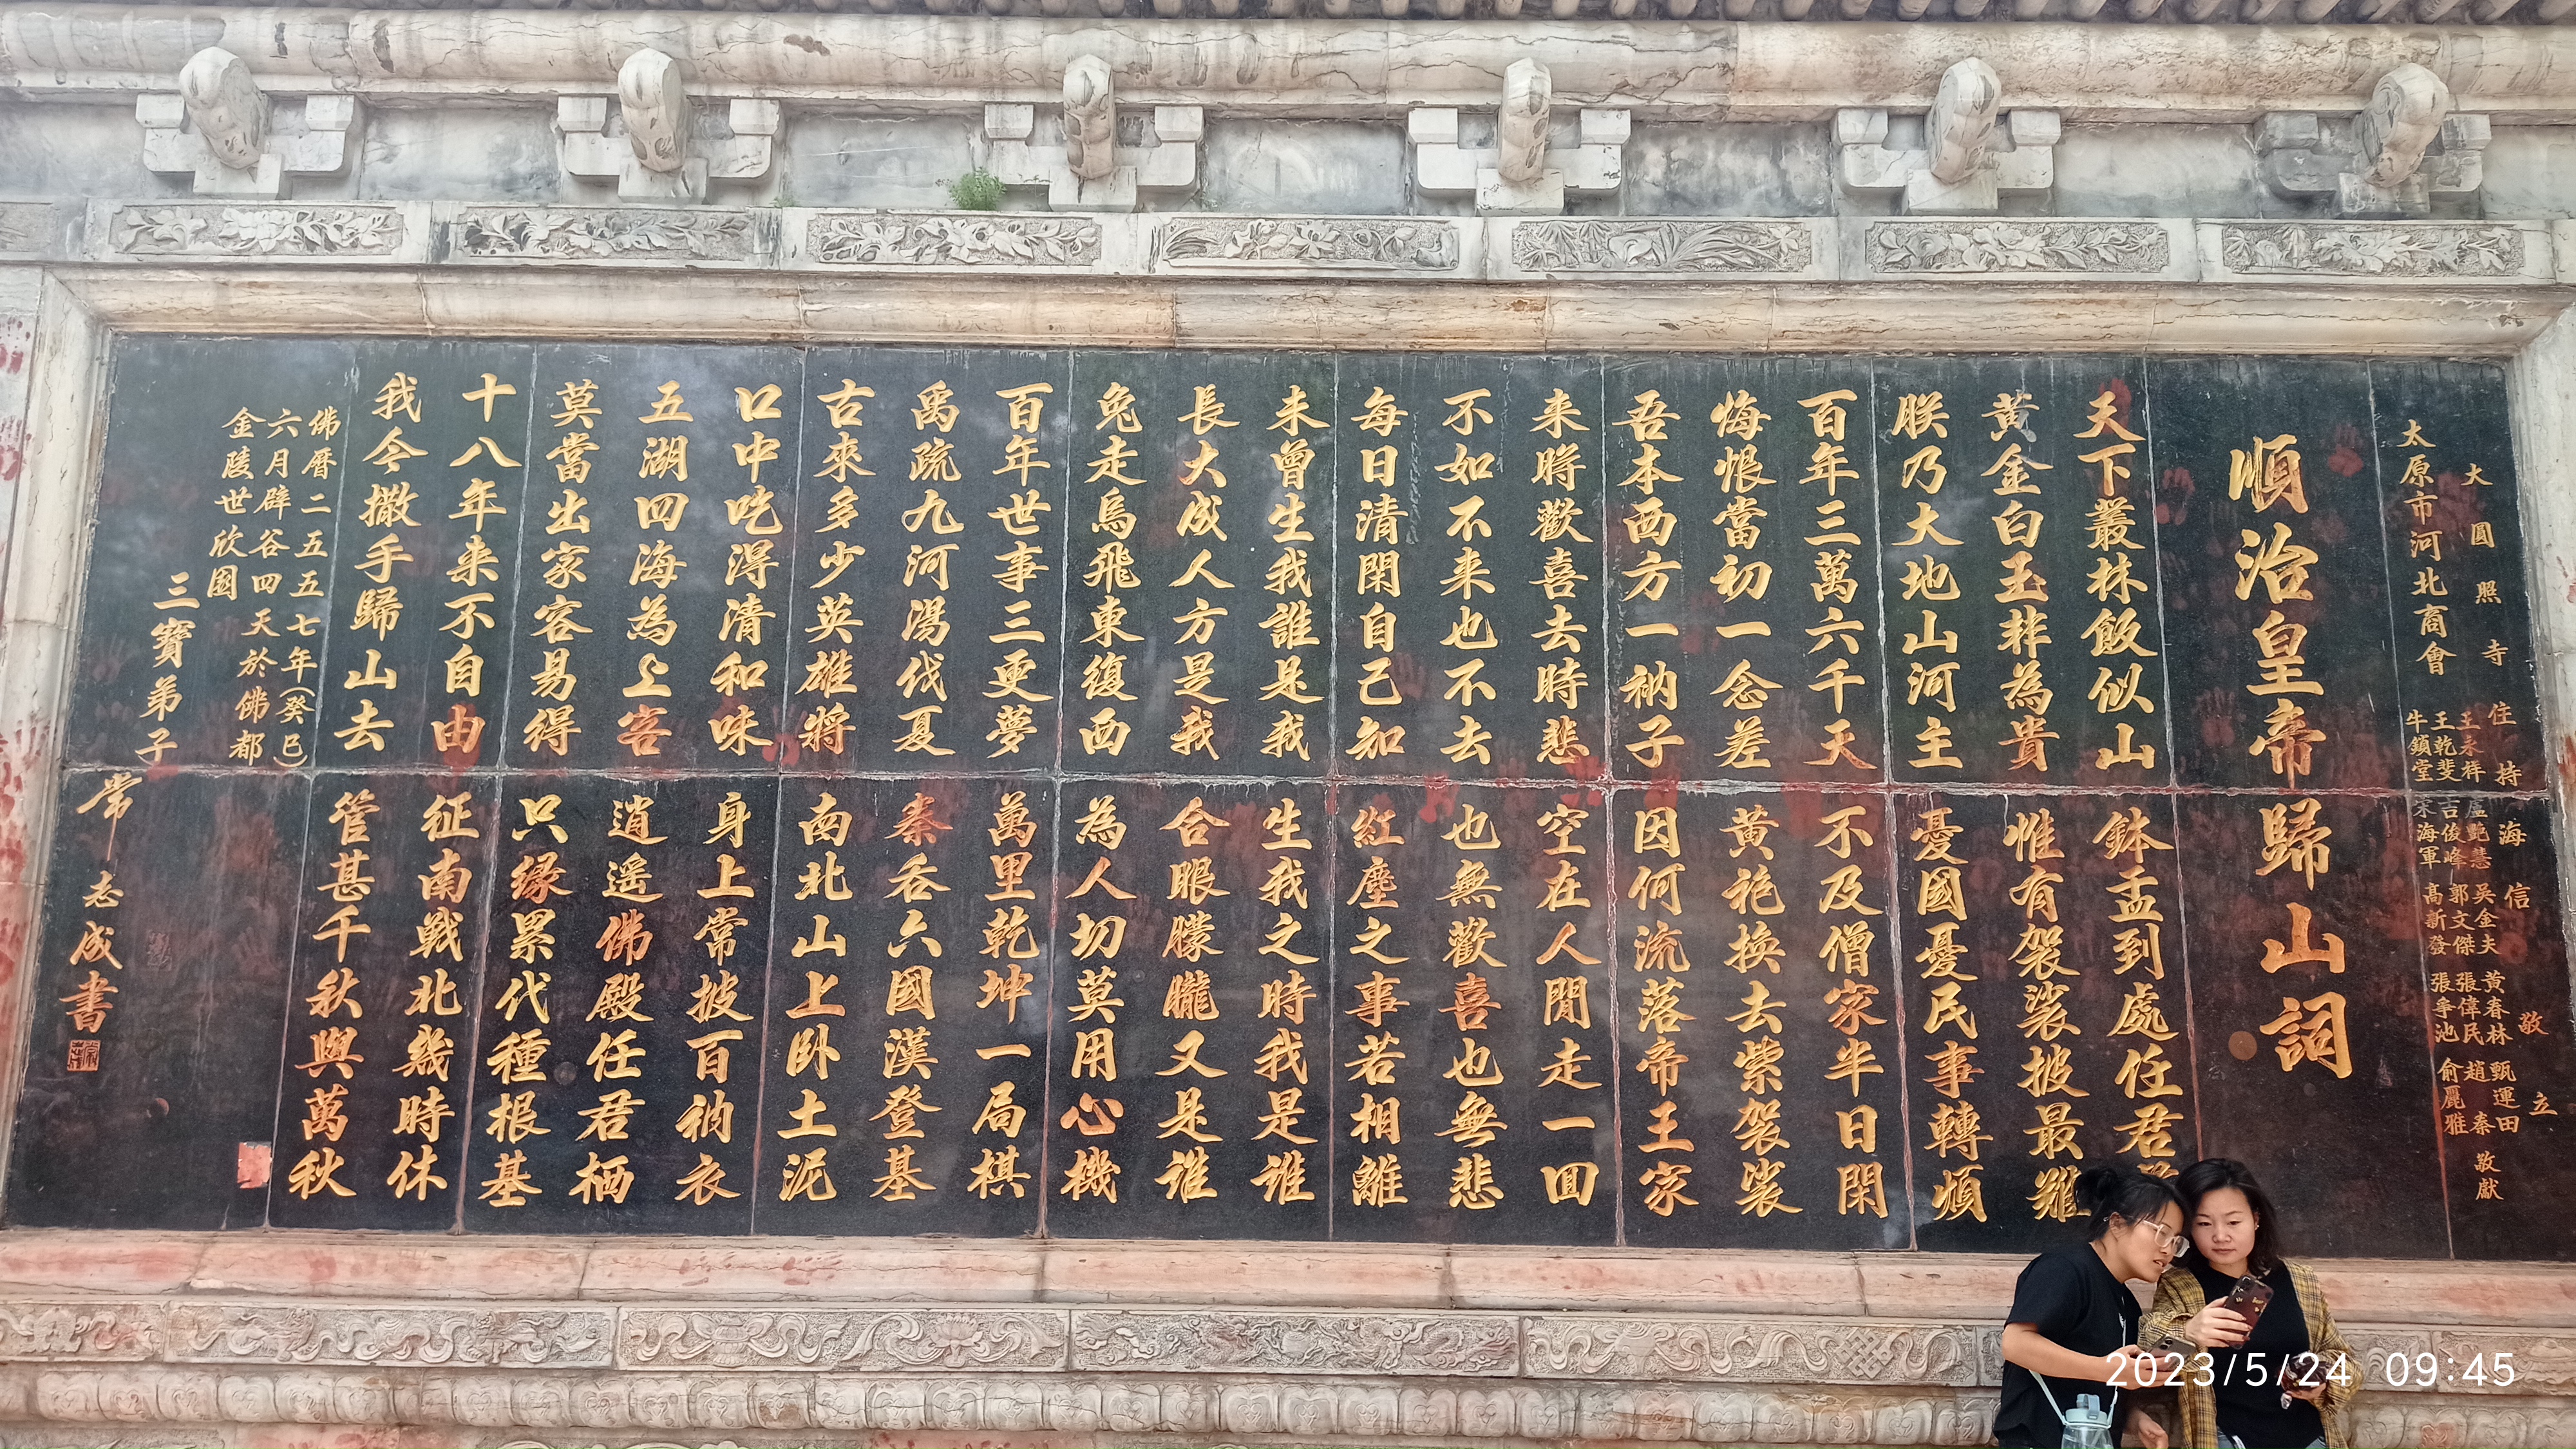 大圓照寺 住持 海信 敬立
太原市河北商會
王永祥 盧艷慧 吳金夫 黃春林 甄運田
王乾斐 吉俊峰 郭文傑 張偉民 趙秦
牛鎖堂 海軍 高新發 張爭池 俞麗雅
敬獻
順治皇帝歸山詞
天下叢林飯似山 鉢盂到處任君
黃金白玉非為貴 惟有袈裟披最難
朕乃大地山河主 憂國憂民事轉煩
百年三萬六千天 不及僧家半日閑
悔恨當初一念差 黃袍換去紫袈裟
吾本西方一衲子 因何流落帝王家
来時歡喜去時悲 空在人間走一回
不如不来也不去 也無歡喜也無悲
每日清閑自己知 紅塵之事若相離
未曾生我誰是我 生我之時我是谁
長大成人方是我 合眼朦朧又是谁
兔走烏飛東復西 為人切莫用心機
百年世事三更夢 萬里乾坤一局棋
禹疏九河湯伐夏 秦吞六國漢登基
古來多少英雄將 南北山上卧土泥
口中吃得清和味 身上常披百衲衣
五湖四海為上客 逍遥佛殿任君栖
莫當出家容易得 只緣累代種根基
十八年来不自由 征南戰北幾時休
我今撒手歸山去 管甚千秋與萬秋
佛曆二五五七年(癸巳)
六月辟谷四天於佛都
金陵世欣園
三寶弟子 常志成書
2023/5/24 09:45